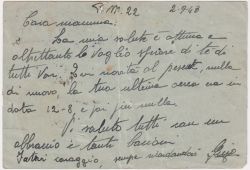 P. M. 22 2-9-43
Cara mamma:
La mia salute è ottima e
altrettanto voglio sperare di te di
tutti voi. Di novità al presente, nulla
di nuovo, la tua ultima era in
data 12-8, e poi più nulla.
Vi saluto tutti con un
abbraccio e tanti bacioni
coraggio, sempre ricordandovi